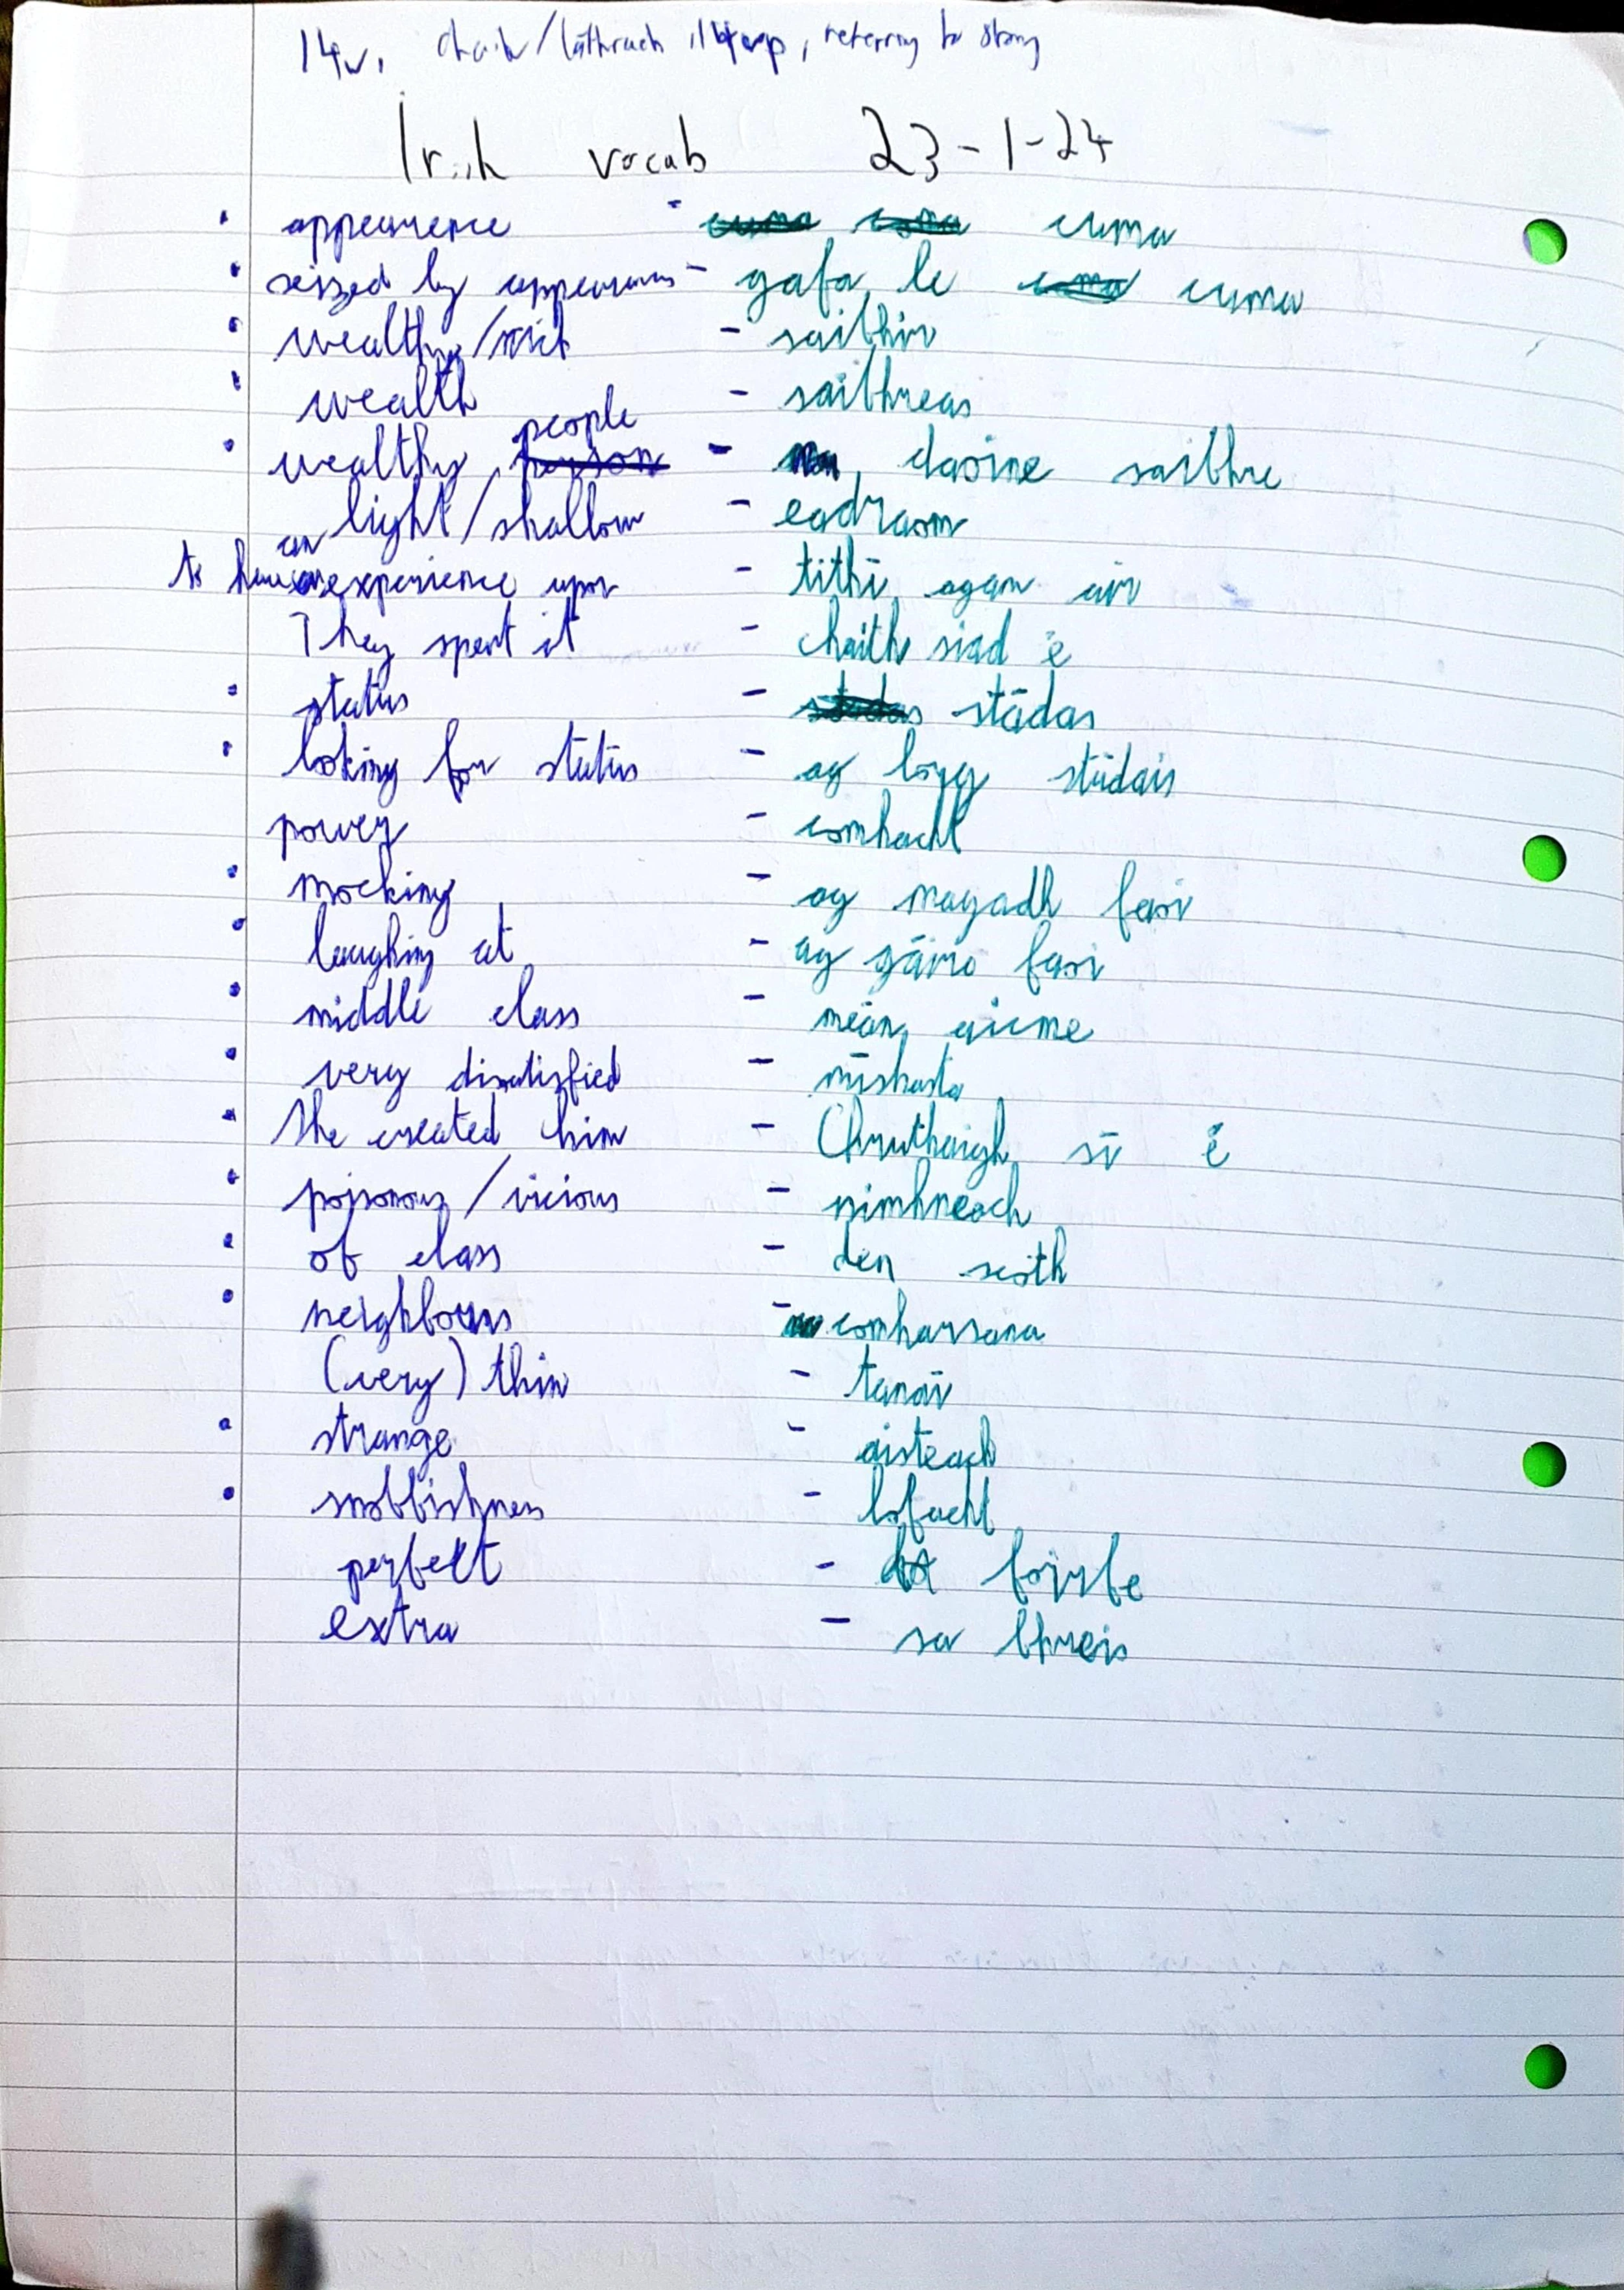 referring to story
Irish vocab 23-1-24
• appearence - cuma
• seized by appearances - gafa le cuma
• wealthy/rich - saibhir
• wealth - saibhreas
• wealthy people - daoine saibhre
light/shallow - eadrom
to have an experience upon - tithí agam air
They spent it - chaith siad é
• status - stádas
• looking for status - ag lorg stádais
power - comhacht
• mocking - ag magadh faoi
• laughing at - ag gáire faoi
• middle class - méan aicme
• very disatisfied - míshasta
• She created him - Chruthaigh sí é
• poisonous/vicious - nimhneach
• of class - den scoth
• neighbours - comharsana
(very) thin - tanaí
• strange - aisteach
• snobbishness - lofacht
perfect - foirfe
extra - sa bhreis